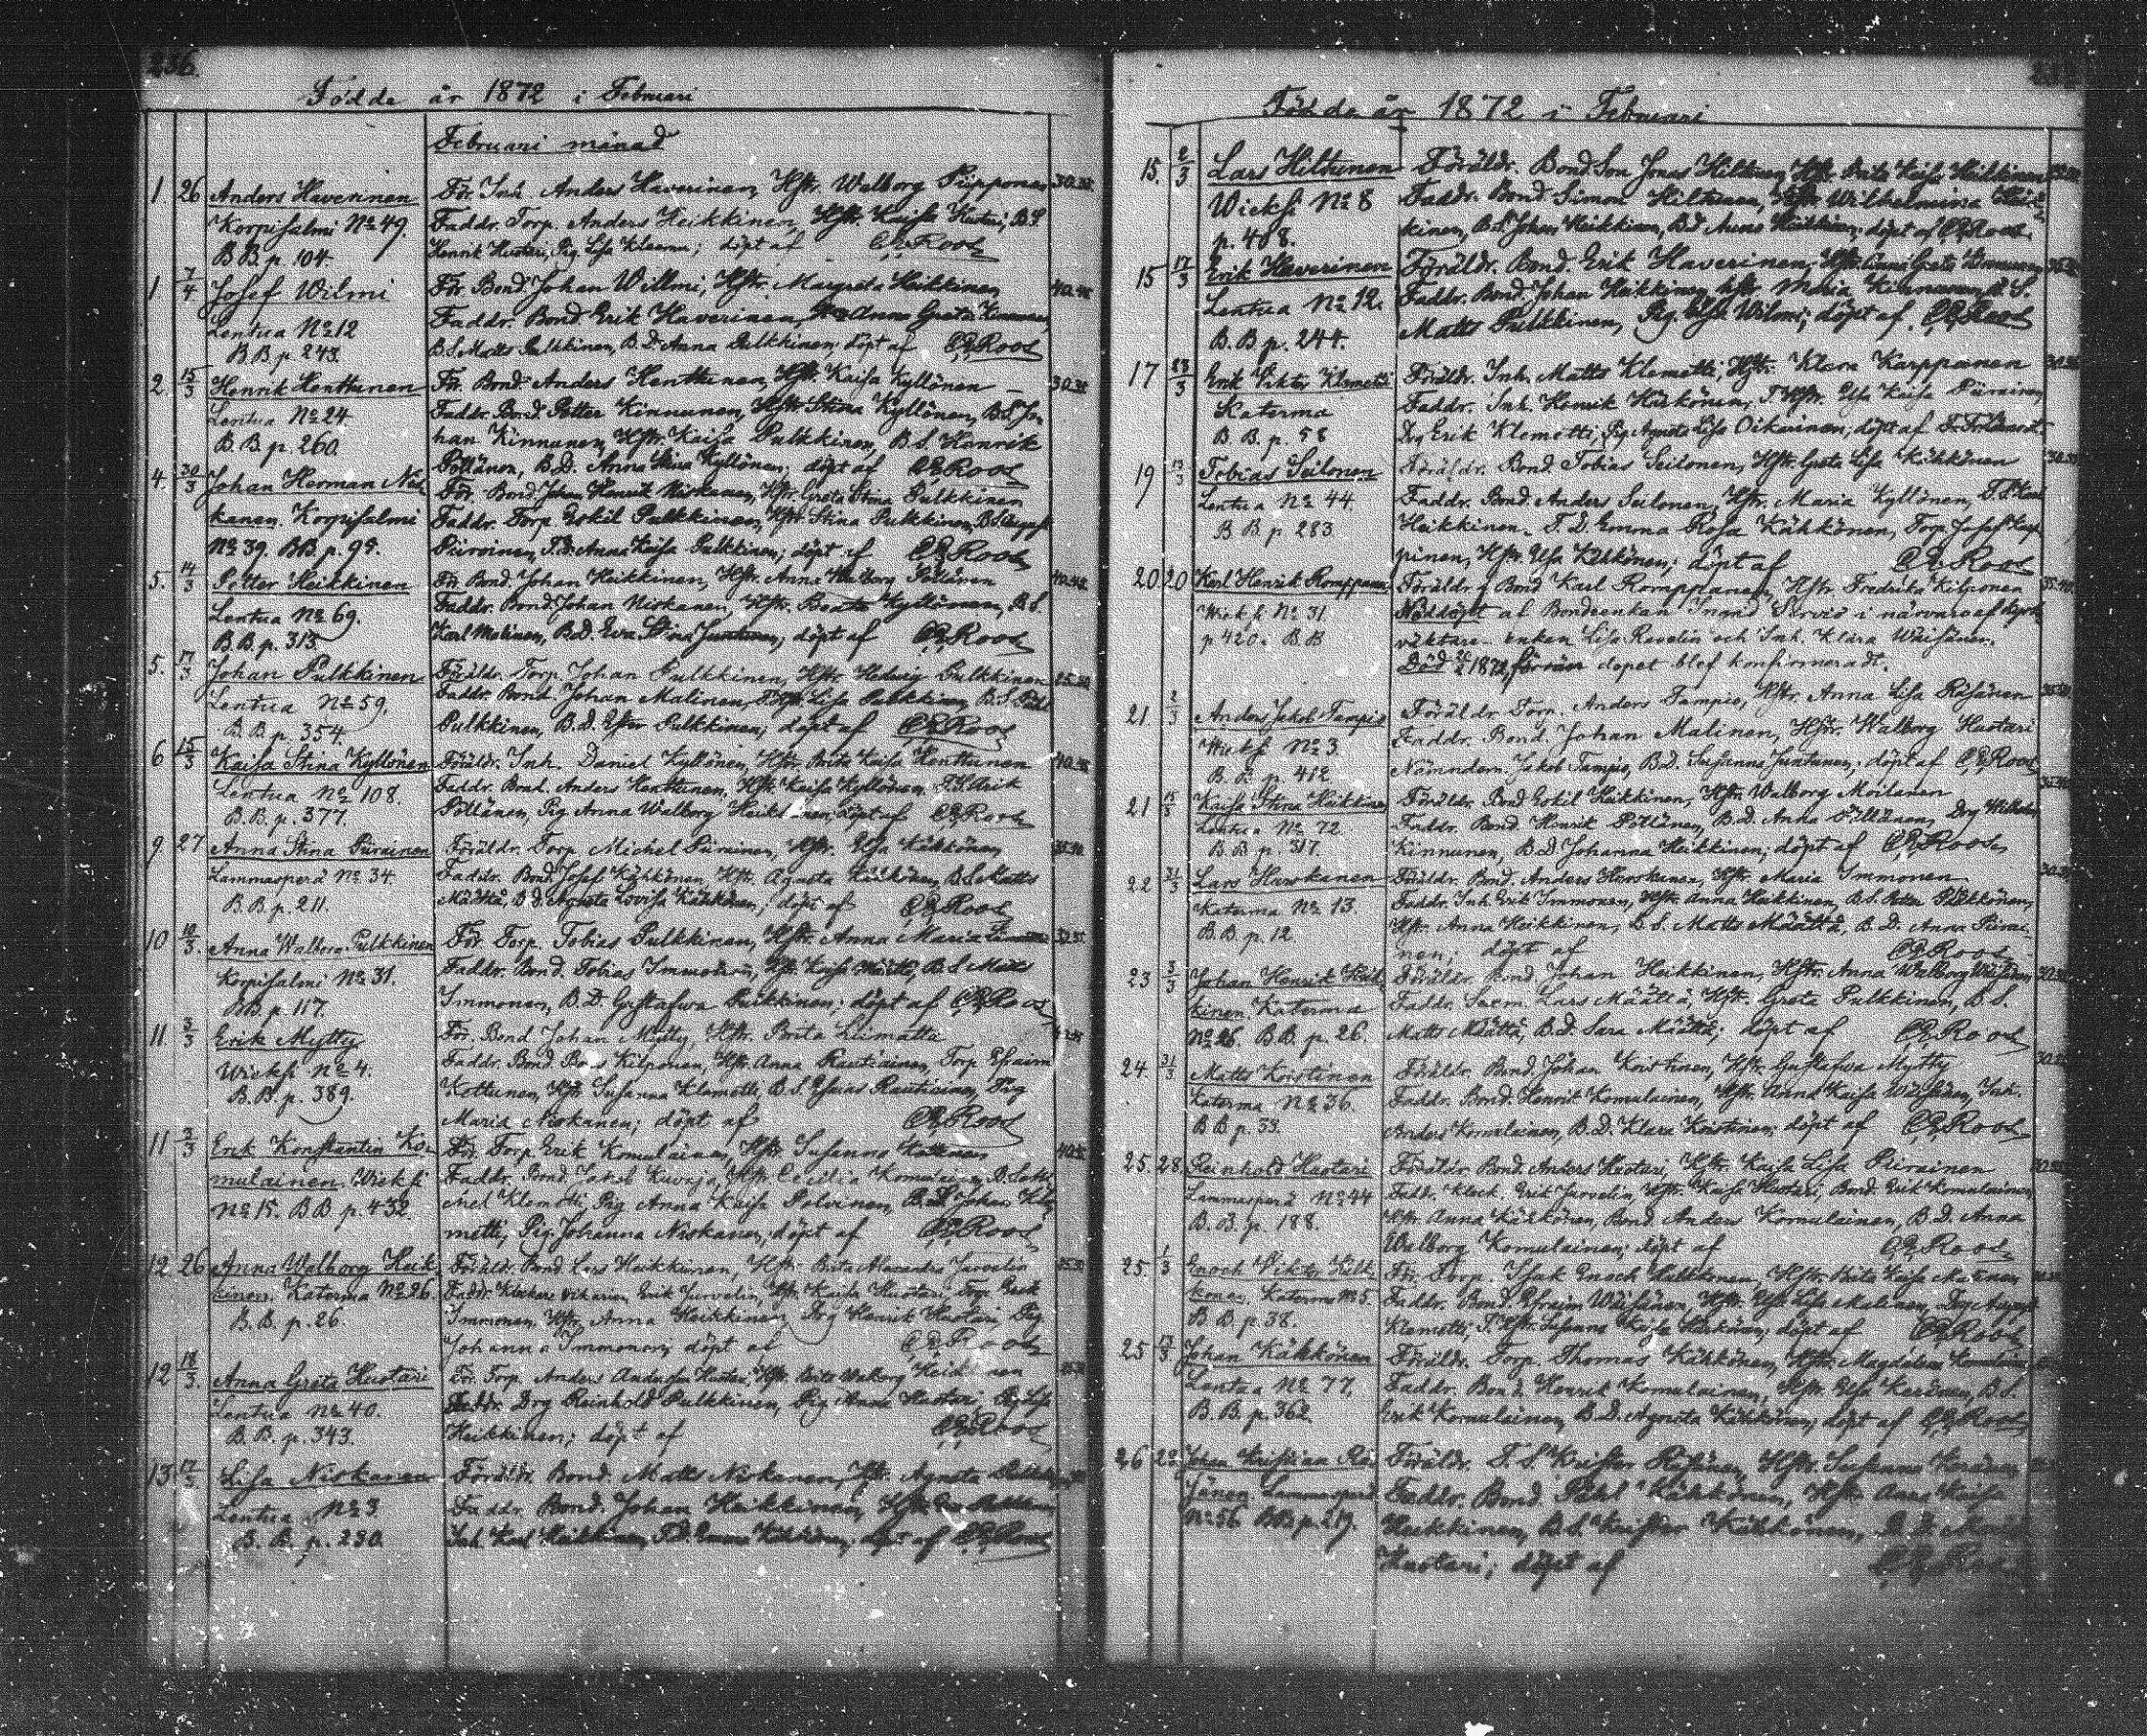 236.
Födde år 1872 i Februari
Februari månad
1 26 Anders Haverinen
Korpisalmi No 49.
B B. p. 104.
För. Inh. Anders Haverinen, Hstr. Walborg Piipponen 30.35
Faddr. Torp. Anders Heikkinen, Hstr. Kaisa Huotari, B.S.
Henrik Huotari, Pig. Lisa Kleemo; döpt af CERoos
1 7/4 Josef Wilmi
Lentua No 12
B B. p. 243.
För. Bond. Johan Willmi, Hstr. Margreta Heikkinen 40.45
Faddr. Bond. Erik Haverinen, Anna Greta Kinnunen,
B.S. Matts Pulkkinen, B.D. Anna Pulkkinen; döpt af CERoos
2. 15/3 Henrik Henttunen
Lentua No 24.
B. B. p. 260.
För. Bond. Anders Henttunen, Hstr. Kaisa Kyllönen 30.35
Faddr. Bond. Petter Kinnunen, Hstr. Stina Kyllönen, B.S. Jo-
han Kinnunen, Hstr. Kaisa Pulkkinen, B.S. Henrik
Pöllänen, B.D. Anna Stina Kyllönen; döpt af CERoos
4. 30/3 Johan Herman Nis-
kanen. Korpisalmi
No 39. BB. p. 95.
För. Bond. Johan Henrik Niskanen, Hstr. Greta Stina Pulkkinen
Faddr. Torp. Eskil Pulkkinen, Hstr. Stina Pulkkinen, B.S. August
Piiroinen, T.D. Anna Kaisa Pulkkinen; döpt af CERoos
5. 14/3 Petter Heikkinen
Lentua No 69.
B. B. p. 313.
För. Bond. Johan Heikkinen, Hstr. Anna Walborg Pöllänen 40.45
Faddr. Bond. Johan Niskanen, Hstr. Beata Kyllönen, B.S.
Karl Malinen, B.D. Eva Stina Juntunen; döpt af CERoos
5. 17/3 Johan Pulkkinen
Lentua No 59.
B. B. p. 354.
Föräldr. Torp. Johan Pulkkinen, Hstr. Hedvig Pulkkinen 25.30
Faddr. Bond. Johan Malinen, Hstr. Lisa Pulkkinen, B.S. Påhl
Pulkkinen, B.D. Ester Pulkkinen; döpt af CERoos
6 15/3 Kaisa Stina Kyllönen
Lentua No 108.
B. B. p. 377.
Föräldr. Inh. Daniel Kyllönen, Hstr. Brita Kaisa Henttunen 40.45
Faddr. Bond. Anders Henttunen, Hstr. Kaisa Kyllönen,
Pöllänen, Pig. Anna Walborg Heikkinen; döpt af CERoos
9 27 Anna Stina Piirainen
Lammasperä No 34.
B. B. p. 211.
Föräldr. Torp. Michel Piirainen, Hstr. Elsa Kähkönen
Faddr. Bond. Josef Kähkönen, Hstr. Agneta Kähkönen, B.S. Matts
Määttä, B.D. Agneta Lovisa Kähkönen; döpt af CERoos
10 10/3. Anna Walborg Pulkkinen
Korpisalmi No 31.
BB. p. 117.
För. Torp. Tobias Pulkkinen, Hstr. Anna Maria Immonen
Faddr. Bond. Tobias Immonen, Hstr. Kaisa Määttä, B.S. Matts
Immonen, B.D. Gustafwa Pulkkinen; döpt af CERoos
11. 3/3 Erik Mytty
Wieksi No 4.
B. B. p. 389.
För. Bond. Johan Mytty, Hstr. Brita Liimatta
Faddr. Bond. Kilponen, Hstr. Anna Rautiainen, Torp. Efraim
Kettunen, Hstr. Susanna Klemetti, B.S. Esaias Rautiainen, Pig
Maria Niskanen; döpt af CERoos
11 3/3 Erik Konstantin Ko-
mulainen. Wieksi
No 15. BB p. 432.
För. Torp. Erik Komulainen, Hstr. Susanna
Faddr. Bond. Jakob Kuvaja, Hstr. Cecilia Komulainen,
Klemetti, Pig Anna Kaisa Polvinen, B.S. Johan Kle-
metti, Pig. Johanna Niskanen; döpt af CERoos
12 26 Anna Walborg Heik-
kinen. Katerma No 26.
B. B. p. 26.
Föräldr. Bond. Lars Heikkinen, Hstr. Brita Alexandra Jurvelin
Faddr. Klockare vikarien Erik Jurvelin, Hstr. Kaisa Huotari, Torp. Erik
Immonen, Hstr. Anna Heikkinen, Drg Henrik Huotari, Pig
Johanna Immonen; döpt af CERoos
12 18/3. Anna Greta Huotari
Lentua No 40.
B. B. p. 343.
För. Torp. Anders Andersson Huotari, Hstr. Brita Walborg Heikkinen
Faddr. Drg Reinhold Pulkkinen, Pig Anna Huotari, Pig Lisa
Heikkinen; döpt af CERoos
13. 17/3 Lisa Niskanen
Lentua No 3.
B. B. p. 230.
Föräldr. Bond. Matts Niskanen, Hstr. Agneta
Faddr. Bond. Johan Heikkinen, Hstr. Eva
Inh. Karl Heikkinen, T.D. Emma Kähkönen; döpt af CERoos
Födde år 1872 i Februari
15. 2/3 Lars Hiltunen
Wieksi No 8
p. 408.
Föräldr. Bond. Son Jonas Hiltunen, Hstr. Brita Kaisa Heikkinen
Faddr. Bond. Simon Hiltunen, Hstr. Wilhelmina Heik-
kinen, B.S. Johan Heikkinen, B.D. Anna Heikkinen; döpt af CERoos
15 17/3 Erik Haverinen
Lentua No 12.
B. B p. 244.
Föräldr. Bond. Erik Haverinen, Hstr. Anna Greta
Faddr. Bond. Johan Heikkinen, Hstr. Maria Kinnunen, B.S.
Matts Pulkkinen, Pig. Elsa Wilmi; döpt af CERoos
17 23/3 Erik Viktor Klemetti
Katerma
B. B. p. 58
Föräldr. Inh. Matts Klemetti, Hstr. Klara Karppanen
Faddr. Inh. Henrik Härkönen, T. Hstr. Elsa Kaisa Piirainen
Drg Erik Klemetti, Pig Agneta Lisa Oikarinen; döpt af
19 17/3 Tobias Seilonen
Lentua No 44.
B B. p 283
Föräldr. Bond. Tobias Seilonen, Hstr. Greta Lisa Kähkönen
Faddr. Bond. Anders Seilonen, Hstr. Maria Kyllönen, T.S. Karl
Heikkinen, T.D. Emma Rosa Kähkönen, Torp. Josef Karp-
pinen, Hstr. Elsa Kähkönen; döpt af CERoos
20 20 Karl Henrik Romppanen
Wieksi No 31.
p. 420. B B
Föräldr. Bond Karl Romppanen, Hstr. Fredrika Kilponen 35.40
Nöddöpt af Bondeenkan Ingrid Servio i närvaro af
väktare enkan Lisa Revelin och Inh. Klara Wäisänen.
Död 20/2 1872, förrän dopet blef konfirmeradt.
21. 2/3 Anders Jakob Tampio
Wieksi No 3.
B. B. p. 412.
Föräldr. Torp. Anders Tampio, Hstr. Anna Lisa Räsänen
Faddr. Bond. Johan Malinen, Hstr. Walborg Huotari
Nämndem. Jakob Tampio, B.D. Susanna Juntunen; döpt af CERoos
21 15/3 Kaisa Stina Heikkinen
Lentua No 72
B. B. p. 317.
Föräldr. Bond Eskil Heikkinen, Hstr. Walborg Moilanen
Faddr. Bond. Henrik Pöllänen, B.D. Anna Pöllänen, Drg Wilhelm
Kinnunen, B.D. Johanna Heikkinen; döpt af CERoos
22 31/3 Lars Hurskanen
Katerma No 13.
B. B. p. 12.
Föräldr. Bond. Anders Hurskanen, Hstr. Maria Immonen
Faddr. Inh. Erik Immonen, Hstr. Anna Heikkinen, B.S. Peter
Hstr. Anna Heikkinen, B.S. Matts Määttä, B.D. Anna Piirai-
nen; döpt af CERoos
23 3/3 Johan Henrik Heik-
kinen. Katerma
No 26. B B. p. 26.
Föräldr. Bond. Johan Heikkinen, Hstr. Anna Walborg Wäisänen
Faddr. Lars Määttä, Hstr. Greta Pulkkinen, B.S.
Matts Määttä, B.D. Sara Määttä; döpt af CERoos
24. 31/3 Matts Koistinen
Katerma No 36.
B B. p. 33.
Föräldr. Bond. Johan Koistinen, Hstr. Gustafwa Mytty
Faddr. Bond. Henrik Komulainen, Hstr. Anna Kaisa Wäisänen, Inh.
Anders Komulainen, B.D. Klara Koistinen; döpt af CERoos
25. 28. Reinhold Huotari
Lammasperä No 44
B. B. p. 188.
Föräldr. Bond. Anders Huotari, Hstr. Kaisa Lisa Piirainen
Faddr. Klock. Erik Jurvelin, Hstr. Kaisa Huotari, Bond. Erik Komulainen,
Hstr. Anna Kähkönen, Bond. Anders Komulainen, B.D. Anna
Walborg Komulainen; döpt af CERoos
25. 1/3 Enoch Viktor Hälk-
könen. Katerma No 5.
B B. p. 38.
För. Torp. Isak Enoch Hälkkönen, Hstr. Brita Kaisa Malinen
Faddr. Bond. Efraim Wäisänen, Hstr. Elsa Lisa Malinen, Drg August
Klemetti, T. Hstr. Susanna Kaisa Härkönen; döpt af CERoos
25 17/3 Johan Kähkönen
Lentua No 77.
B. B. p. 362.
Föräldr. Torp. Thomas Kähkönen, Hstr. Magdalena Komulainen
Faddr. Bond. Henrik Komulainen, Hstr. Elsa Keränen, B.S.
Erik Komulainen, B.D. Agneta Kähkönen; döpt af CERoos
26 Johan Kristian Rä-
sänen. Lammasperä
No 56 BB p. 219.
Föräldr. T.S. Krister Räsänen, Hstr. Susanna Keränen
Faddr. Bond. Påhl Kähkönen, Hstr. Anna Kaisa
Heikkinen, B.S. Krister Kähkönen, B.D.
Huotari; döpt af CERoos